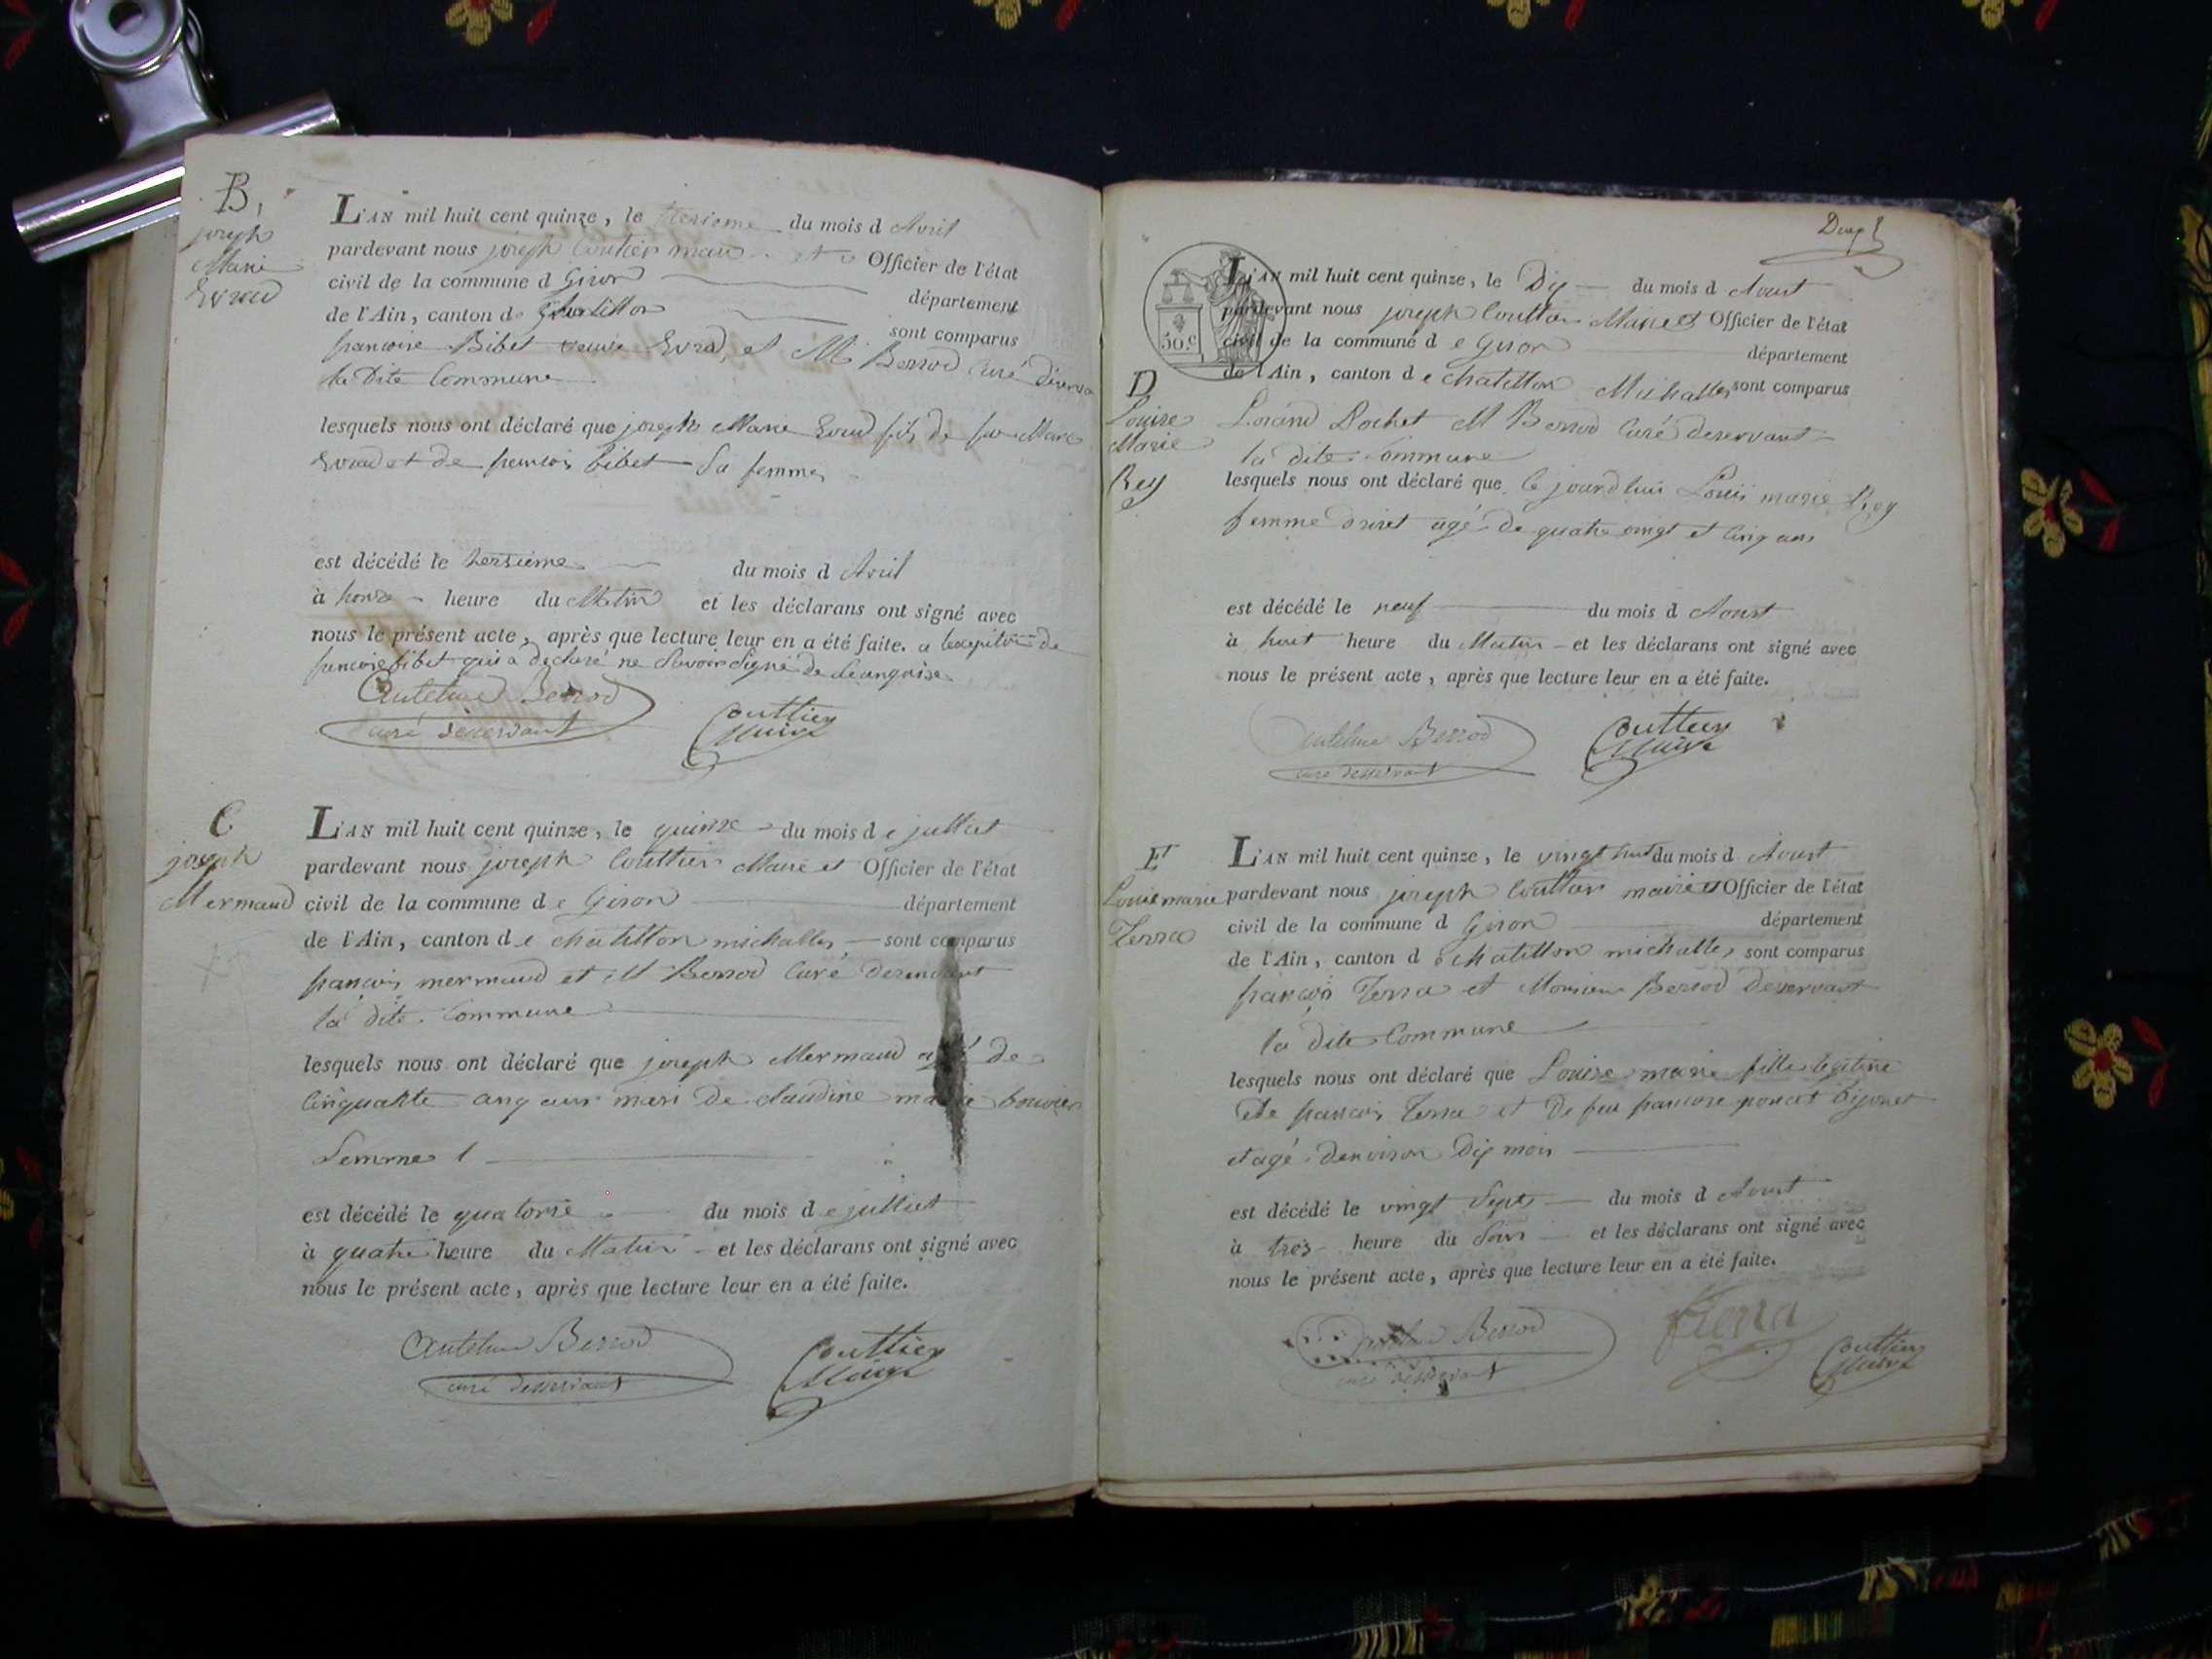 B,
joseph
Marie
Evrod
L'AN mil huit cent quinze, le du mois d Avril
pardevant nous joseph Coutier maire et Officier de l'état
civil de la commune d Giron
département
de l'Ain, canton de Chatillon
sont comparus
francoise Bibet veuve Evrod, et M Berrod Curé
la dite Commune
lesquels nous ont déclaré que joseph Marie Evrod fils de feu Marie
Evrod et de francois bibet Sa femme
est décédé le tersieme du mois d Avril
à honze heure du Matin et les déclarans ont signé avec
nous le présent acte, après que lecture leur en a été faite. a de
francoise bibet qui a declaré ne Savoir Signé de
Antelme Berrod
curé desservant
Couttier
Maire
C
joseph
Mermaud
L'AN mil huit cent quinze, le quinze du mois d e julliet
pardevant nous joseph Couttier Maire et Officier de l'état
civil de la commune d e Giron département
de l'Ain, canton d e chatillon michalles sont comparus
francois mermaud et M Berrod Curé deservant
la dite Commune
lesquels nous ont déclaré que joseph Mermaud agé de
Cinquante ans mari de claudine marie bouvier
Semme
est décédé le quatorse du mois d e julliet
à quatre heure du Matin et les déclarans ont signé avec
nous le présent acte, après que lecture leur en a été faite.
Antelme Berrod
curé desservant
Couttier
Maire
50.c
L'AN mil huit cent quinze, le Dix du mois d Aoust
pardevant nous joseph Couttier Maire et Officier de l'état
civil de la commune d e Giron
département
de l'Ain, canton d e chatillon Michalles sont comparus
D
Louise
Marie
Rey
Rochet M Berrod Curé deservant
la dite Commune
lesquels nous ont déclaré que le jourdhui Louis marie Rey
femme agé de quatre vingt et Cinq ans
est décédé le neuf du mois d Aoust
à huit heure du Matin et les déclarans ont signé avec
nous le présent acte, après que lecture leur en a été faite.
Antelme Berrod
curé desservant
Couttier
Maire
E
Louise marie
Terra
L'AN mil huit cent quinze, le vingt huit du mois d Aoust
pardevant nous joseph Couttier maire et Officier de l'état
civil de la commune d Giron département
de l'Ain, canton d e chatillon michalles sont comparus
francois Terra et Monsieur Berrod Deservant
la dite Commune
lesquels nous ont déclaré que Louise marie fille legitime
de francois Terra et De feu francoise poncet
et agé denviron Dix mois
est décédé le vingt Sept du mois d Aoust
à tres heure du Soir et les déclarans ont signé avec
nous le présent acte, après que lecture leur en a été faite.
Antelme Berrod
curé desservant
fterra
Couttier
Maire